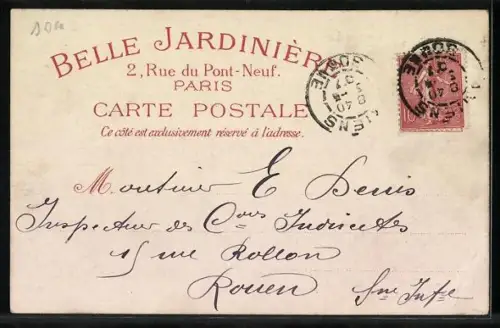 BELLE JARDINIÈRE
2, Rue du Pont-Neuf.
PARIS
CARTE POSTALE
Ce côté est exclusivement réservé à l'adresse.
Monsieur E Denis
Inspecteur des Cons Indirectes
15 rue Rollon
Rouen
Sne Infre